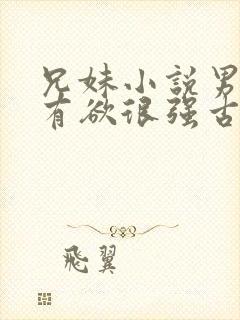 兄妹小説男
有欲很强古
飛翼